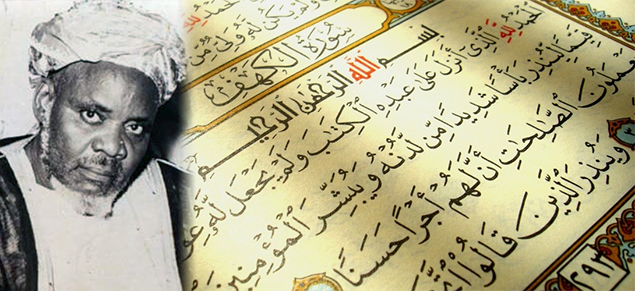 يَكُن لَّهُ وَلِيٌّ مِّنَ
سُورَةُ الْكَهْفِ
بِسْمِ اللَّهِ الرَّحْمَٰنِ الرَّحِيمِ
الْحَمْدُ لِلَّهِ الَّذِي أَنزَلَ عَلَىٰ عَبْدِهِ الْكِتَابَ وَلَمْ يَجْعَل لَّهُ عِوَ
لِّيُنذِرَ بَأْسًا شَدِيدًا مِّن لَّدُنْهُ وَيُبَشِّرَ الْمُؤْمِنِينَ
يَعْمَلُونَ الصَّالِحَاتِ أَنَّ لَهُمْ أَجْرًا حَسَنًا
وَيُنذِرَ الَّذِينَ قَالُوا
٢٩٣